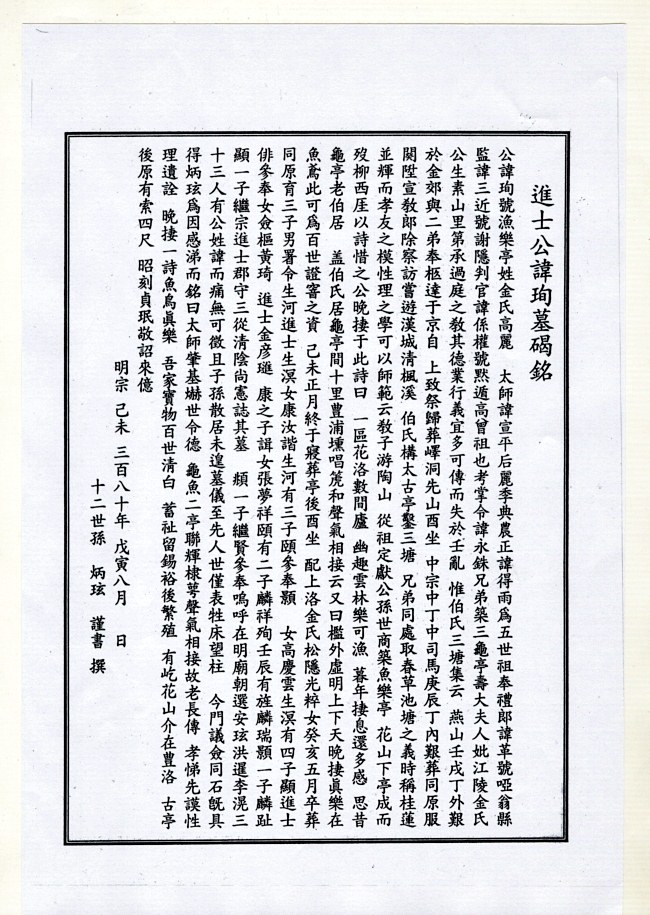 進士公諱珣墓碣銘
公諱珣號漁樂亭姓金氏高麗 太師諱宣平后麗季典農正諱得雨爲五世祖奉禮郎諱革號啞翁縣
監諱三近號謝隱判官諱係權號黙遁高曾祖也考掌令諱永銖兄弟築三龜亭壽大夫人妣江陵金氏
公生素山里第承過庭之敎其德業行義宜多可傳而失於壬亂 惟伯氏三塘集云 燕山壬戌丁外艱
於金郊與二弟奉柩達于京自 上致祭歸葬嶧洞先山酉坐 中宗中丁中司馬庚辰丁內艱葬同原服
闋陞宣敎郎除察訪嘗遊漢城淸楓溪 伯氏構太古亭鑿三塘 兄弟同處取春草池塘之義時稱桂蓮
並輝而孝友之模性理之學可以師範云敎子游陶山 從祖定獻公孫世商築魚樂亭 花山下亭成而
歿柳西厓以詩惜之公晩捿于此詩曰 一區花洛數間廬 幽趣雲林樂可漁 暮年捿息還多感 思昔
龜亭老伯居 盖伯氏居龜亭間十里豊浦壎唱箎和聲氣相接云又曰檻外虛明上下天晩捿眞樂在
魚鳶此可爲百世證審之資 己未正月終于寢葬亭後酉坐 配上洛金氏松隱光粹女癸亥五月卒葬
同原育三子男署令生河進士生溟女康汝諧生河有三子頤參奉顥 女高慶雲生溟有四子顯進士
俳參奉女僉樞黃琦 進士金彦璡 康之子諿女張夢祥頤有二子麟祥殉壬辰有旌麟瑞顥一子麟趾
顯一子繼宗進士郡守三從淸陰尙憲誌其墓 頫一子繼賢參奉嗚呼在明廟朝選安玹洪暹李滉三
十三人有公姓諱而痛無可徵且子孫散居未遑墓儀至先人世僅表牲床望柱 今門議僉同石旣具
得炳玹爲因感涕而銘曰太師肇基嚇世令德 龜魚二亭聯輝棣萼聲氣相接故老長傳 孝悌先謨性
理遺詮 晩捿一詩魚鳥眞樂 吾家寶物百世淸白 蓄祉留錫裕後繁殖 有屹花山介在豊洛 古亭
後原有索四尺 昭刻貞珉敬詔來億
明宗 己未 三百八十年 戊寅八月 日
十二世孫 炳玹 謹書 撰